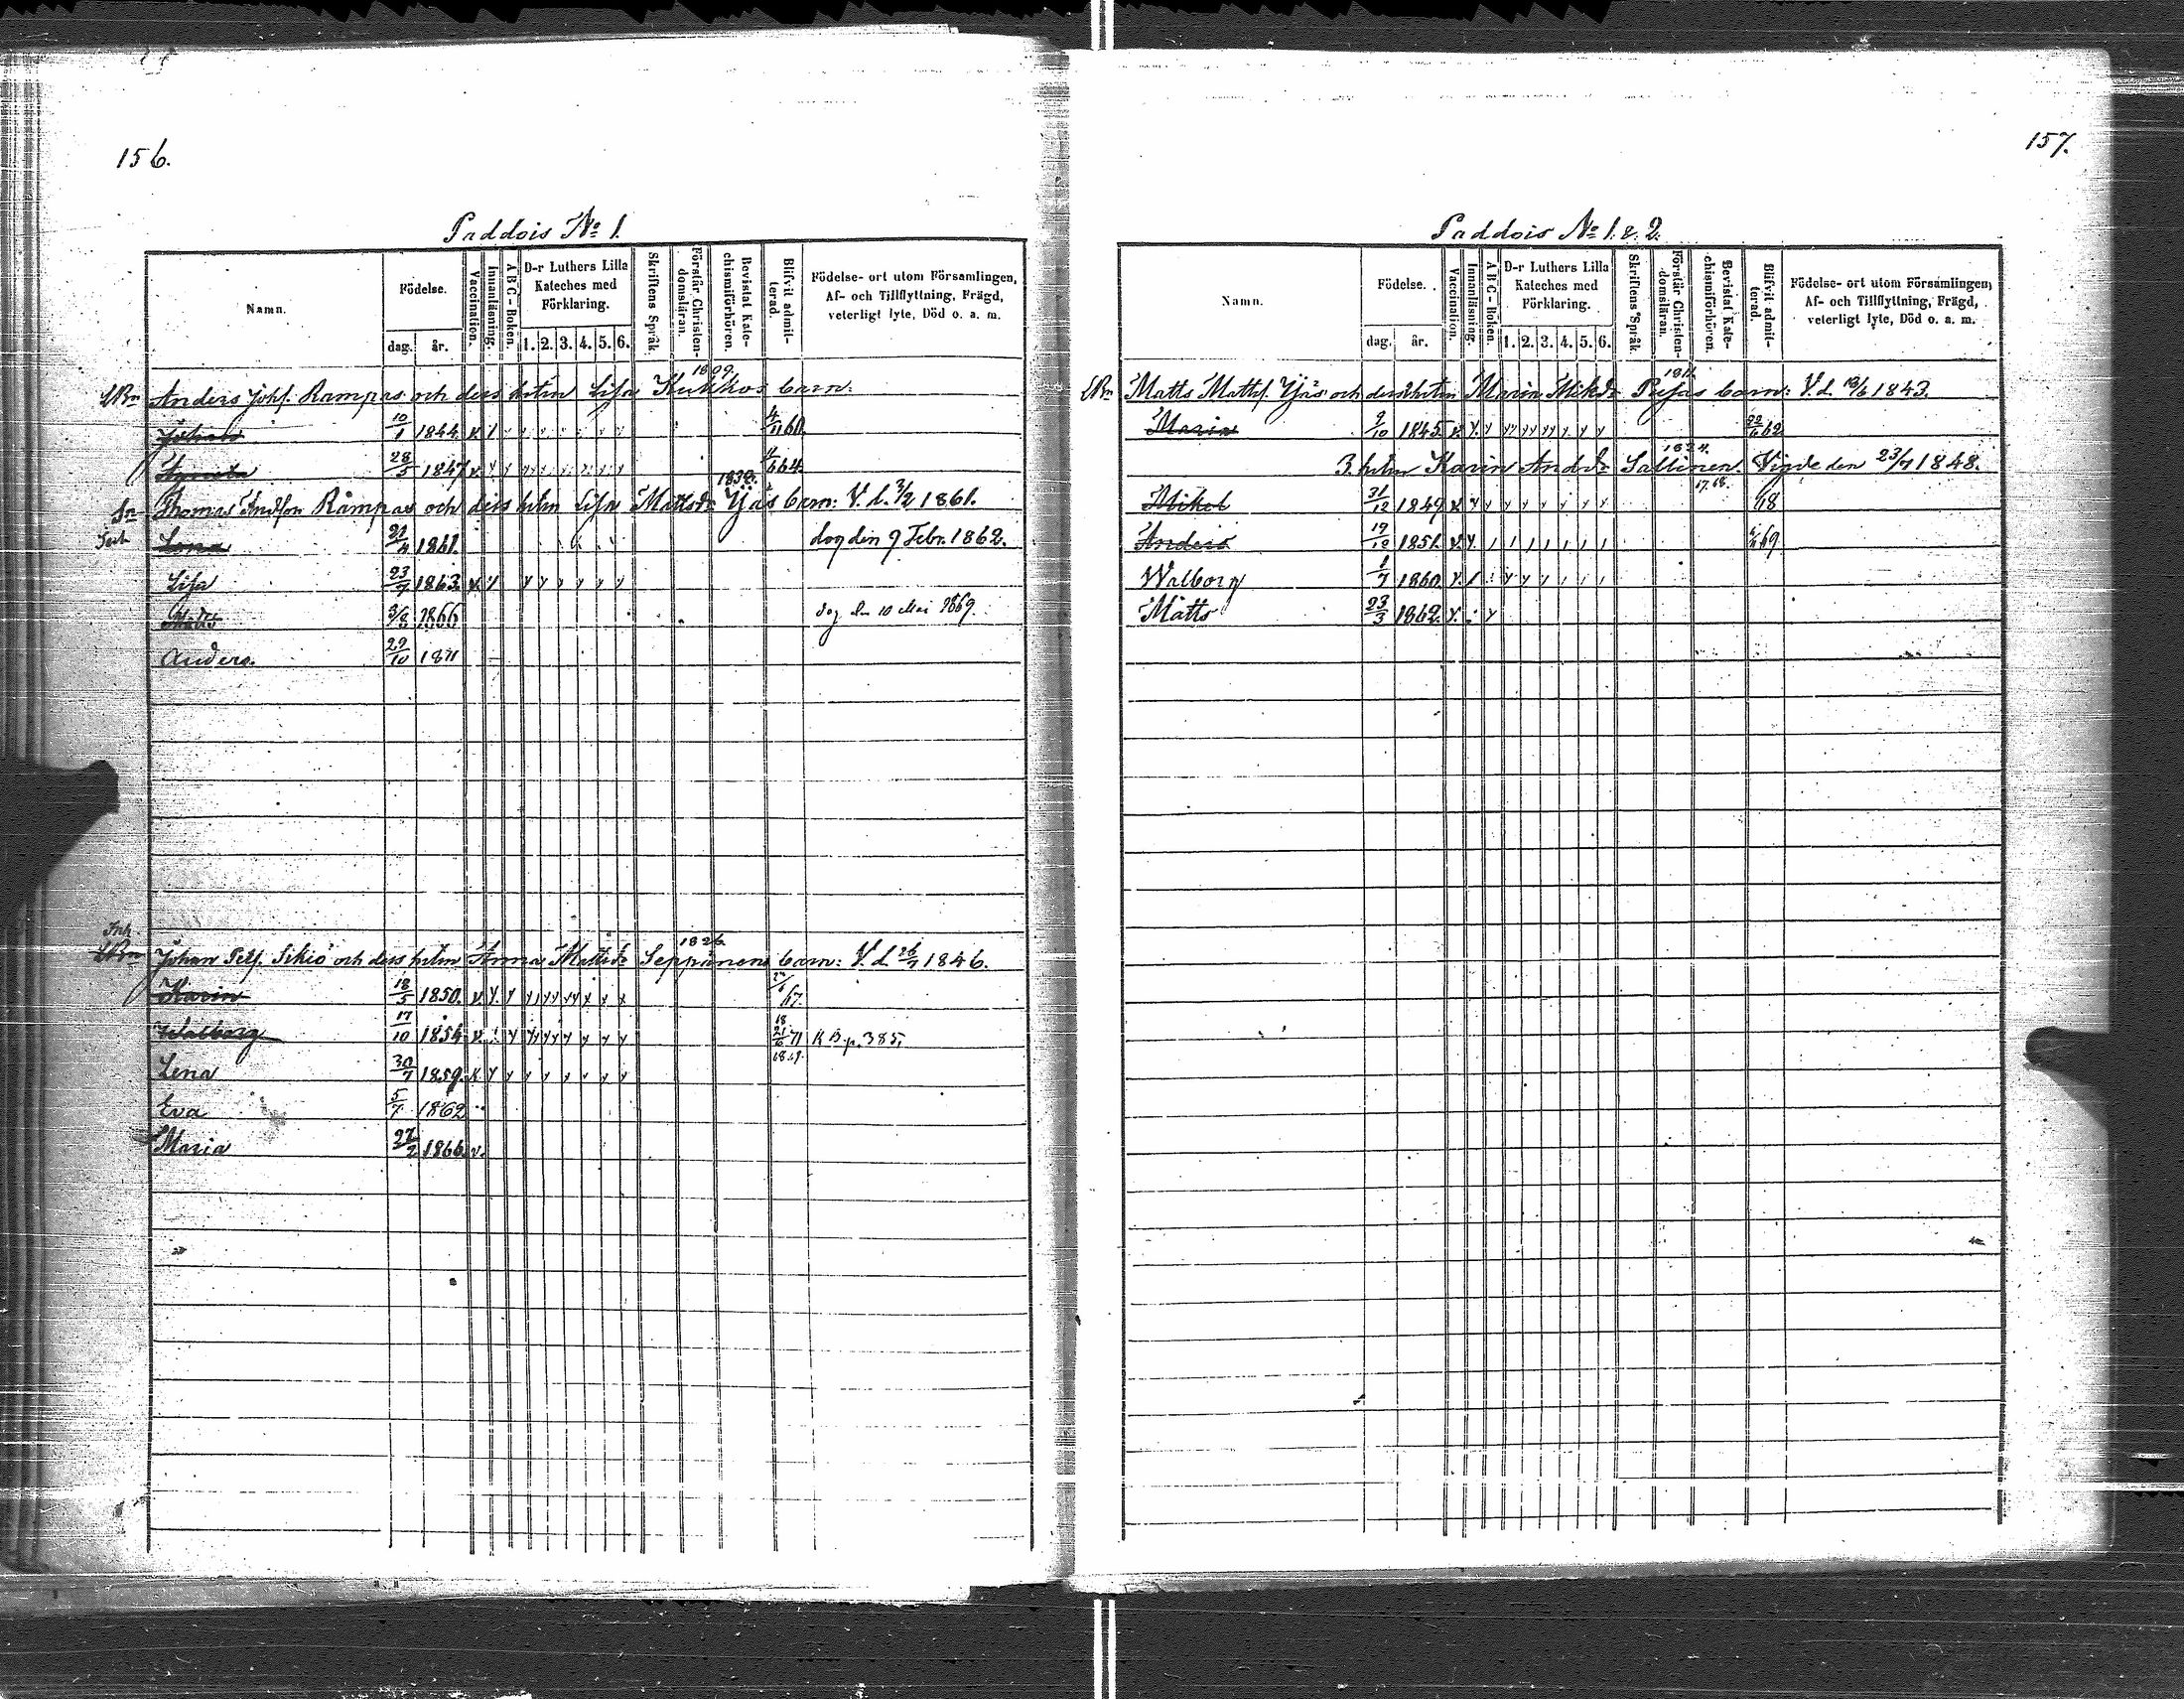 156.
Paddois No 1.
Namn.
Födelse.
dag.
år.
Vaccination.
Innanläsning.
A B C - Boken.
D-r Luthers Lilla
Kateches med
Förklaring.
1. 2. 3. 4. 5. 6.
Skriftens Språk.
Förstår Christen-
domsläran.
Bevistat Kate-
chismiförhören.
Blifvit admit-
terad.
Födelse- ort utom Församlingen,
Af- och Tillflyttning, Frägd,
veterligt lyte, Död o. a. m.
1809.
Anders Johs. Rampas och dess hstru Lisa Kukkos barn:
Johan 10/1 1844 4/11 60.
Agneta 28/5 1847 64.
1838.
Thomas Andson Rampas och dess hstru Lisa Mattsdr Yjäs barn: V. d. 3/2 1861.
Lena 21/4 1861. dog den 9 Febr. 1862.
Lisa 23/7 1863.
3/8 1866 dog den 10 Mai 1869.
Anders. 29/10 1871
Inh.
1826.
Johan Sikiö och dess hstru Anna Mattsdr Seppänens barn: V. d. 26/7 1846.
Karin 18/5 1850. 67.
Walborg 17/10 1854 21/6 71 K B. p. 385.
Lena 30/7 1859.
Eva 5/7 1862
Maria 27/2 1866. v.
157.
Paddois No 1. & 2.
Namn.
Födelse.
dag.
år.
Vaccination.
Innanläsning.
A B C - Boken.
D-r Luthers Lilla
Kateches med
Förklaring.
1. 2. 3. 4. 5. 6.
Skriftens Språk.
Förstår Christen-
domsläran.
Bevistat Kate-
chismiförhören.
Blifvit admit-
terad.
Födelse- ort utom Församlingen,
Af- och Tillflyttning, Frägd,
veterligt lyte, Död o. a. m.
1811.
Matts Matts. Yjäs och dess hstru Maria Miksdr barn: V. d. 1843.
Maria 9/10 1845. 62
1824.
3. hstru Karin Andsdr Sallinen. Vigde den 23/7 1848.
17. 68.
Mikel 31/12 1849 68
Anders 19/12 1851. 69
Walborg 1/7 1860.
Matts 23/3 1862.